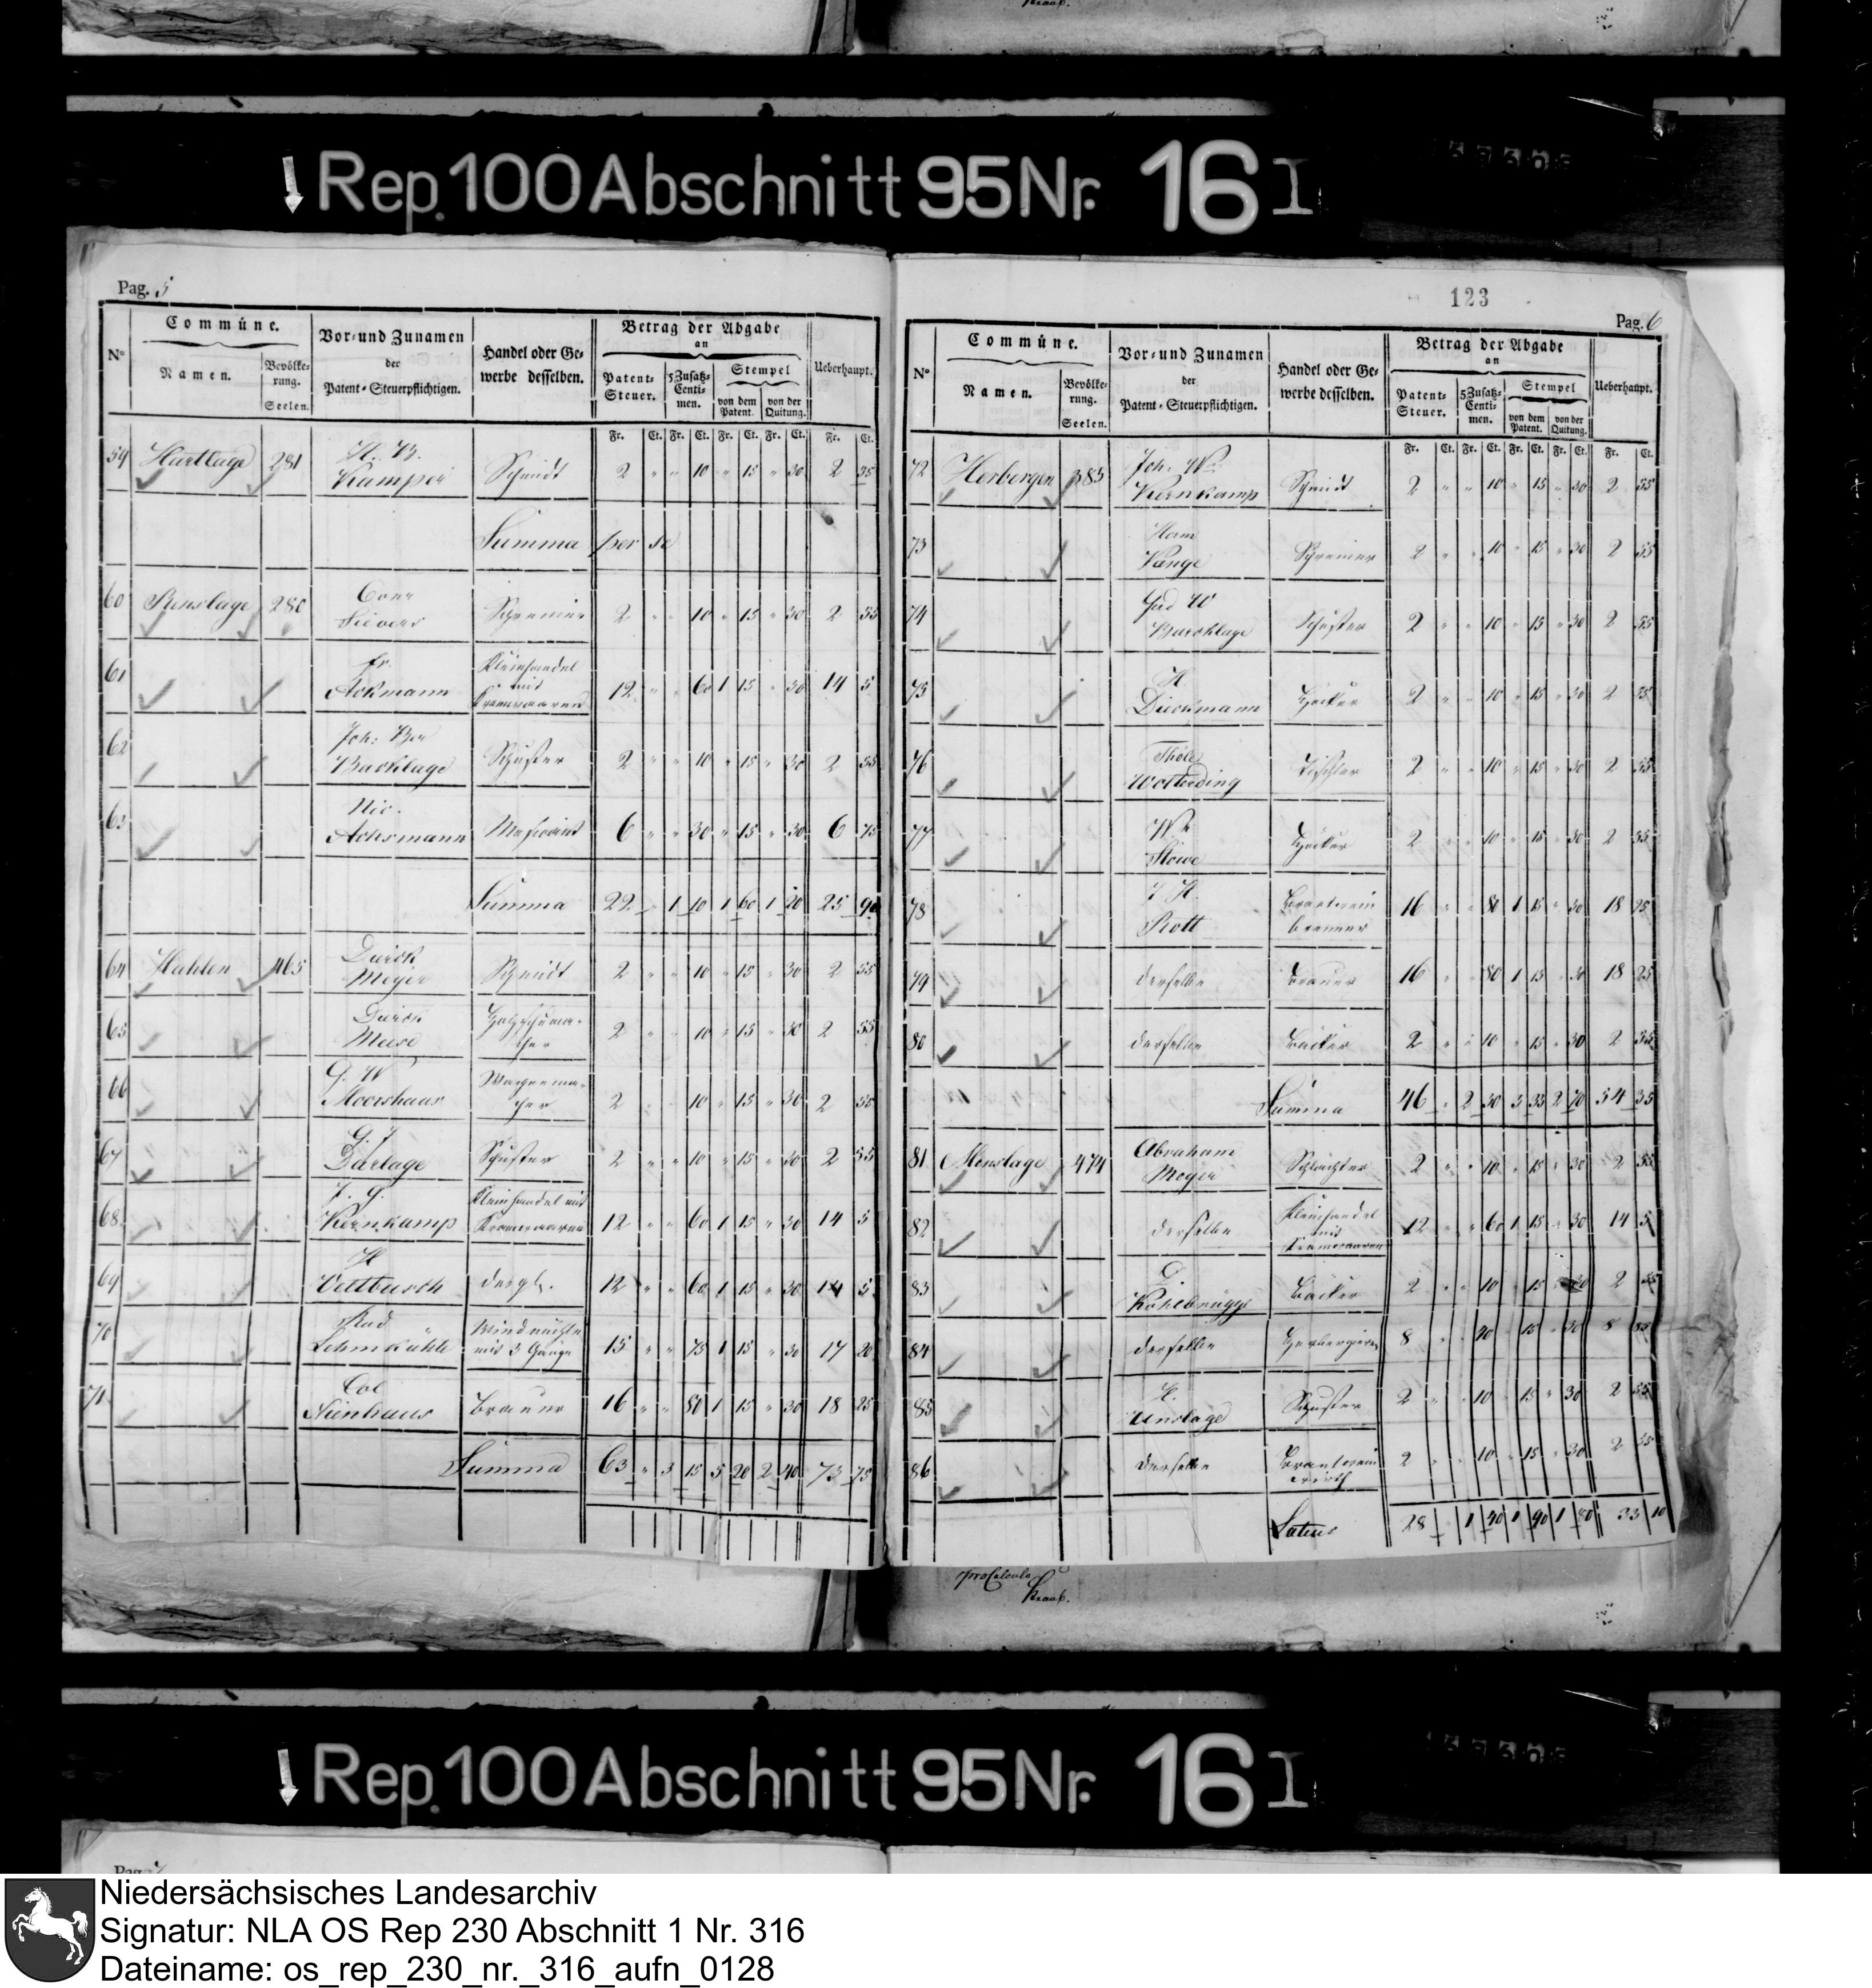 Kraus.
↓ Rep. 100 Abschnitt 95 Nr. 16 I
Pag. 5
N° Commúne. Vor- und Zunamen der Patent-Steuerpflichtigen. Handel oder Gewerbe desselben. Betrag der Abgabe an Ueberhaupt.
Namen. Bevölkerung. Seelen. Patent-Steuer. 5 Zusatz-Centimen. Stempel von dem Patent. von der Quitung.
Fr. Ct. Fr. Ct. Fr. Ct. Fr. Ct. Fr. Ct.
59 Hartlage 281 H. B. Kamper Schmidt 2 " " 10 " 15 " 30 2 55
Summa per se
60 Renslage 280 Conr Sievers Schreiner 2 " " 10 " 15 " 30 2 55
61 Fr. Ackmann Kleinhandel mit Kramwaaren 12 " " 60 1 15 " 30 14 5
62 Joh: Ber Backlage Schuster 2 " " 10 " 15 " 30 2 55
63 Nic. Ackmann 6 " " 30 " 15 " 30 6 75
Summa 22 " 1 10 1 60 1 20 25 90
64 Hahlen 465 Dierck Meyer Schmidt 2 " " 10 " 15 " 30 2 55
65 Dierck Meese Holzschumacher 2 " " 10 " 15 " 30 2 55
66 G. W Moorshaus Wagenmacher 2 " " 10 " 15 " 30 2 55
67 G. J Darlage Schuster 2 " " 10 " 15 " 30 2 55
68 J. G. Kernkamp Kleinhandel mit Kramwaaren 12 " " 60 1 15 " 30 14 5
69 H Vettbusch dergl. 12 " " 60 1 15 " 30 14 5
70 Rud Lehmkuhle Windmühle mit 3 Gänge 15 " " 75 1 15 " 30 17 20
71 Col Nienhaus Brauer 16 " " 80 1 15 " 30 18 25
Summa 63 " 3 15 5 20 2 40 73 75
123
Pag. 6
N° Commúne. Vor- und Zunamen der Patent-Steuerpflichtigen. Handel oder Gewerbe desselben. Betrag der Abgabe an Ueberhaupt.
Namen. Bevölkerung. Seelen. Patent-Steuer. 5 Zusatz-Centimen. Stempel von dem Patent. von der Quitung.
Fr. Ct. Fr. Ct. Fr. Ct. Fr. Ct. Fr. Ct.
72 Herbergen 385 Joh: Wm Kernkamp Schmidt 2 " " 10 " 15 " 30 2 55
73 Herm Lange Schreiner 2 " " 10 " 15 " 30 2 55
74 Backlage Schuster 2 " " 10 " 15 " 30 2 55
75 H Dieckmann Höcker 2 " " 10 " 15 " 30 2 55
76 Thole Wolterding Tischler 2 " " 10 " 15 " 30 2 55
77 Wm Stowe Höcker 2 " " 10 " 15 " 30 2 55
78 J H. Rott Brantwein brenner 16 " " 80 1 15 " 30 18 25
79 derselbe Brauer 16 " " 80 1 15 " 30 18 25
80 derselbe Bäcker 2 " " 10 " 15 " 30 2 55
Summa 46 " 2 30 3 35 2 70 54 35
81 Menslage 474 Abraham Meyer Schlachter 2 " " 10 " 15 " 30 2 55
82 derselbe Kleinhandel mit Kramwaaren 12 " " 60 1 15 " 30 14 5
83 D. Kohlbrügge Bäcker 2 " " 10 " 15 " 30 2 55
84 derselbe 8 " " 40 " 15 " 30 8 85
85 H. Unslage Schuster 2 " " 10 " 15 " 30 2 55
86 derselbe Brantwein wirth 2 " " 10 " 15 " 30 2 55
Latus 28 " 1 40 1 90 1 80 33 10
pro Calculo
Kraus.
↓ Rep. 100 Abschnitt 95 Nr. 16 I
Pag. 7
Niedersächsisches Landesarchiv
Signatur: NLA OS Rep 230 Abschnitt 1 Nr. 316
Dateiname: os_rep_230_nr._316_aufn_0128